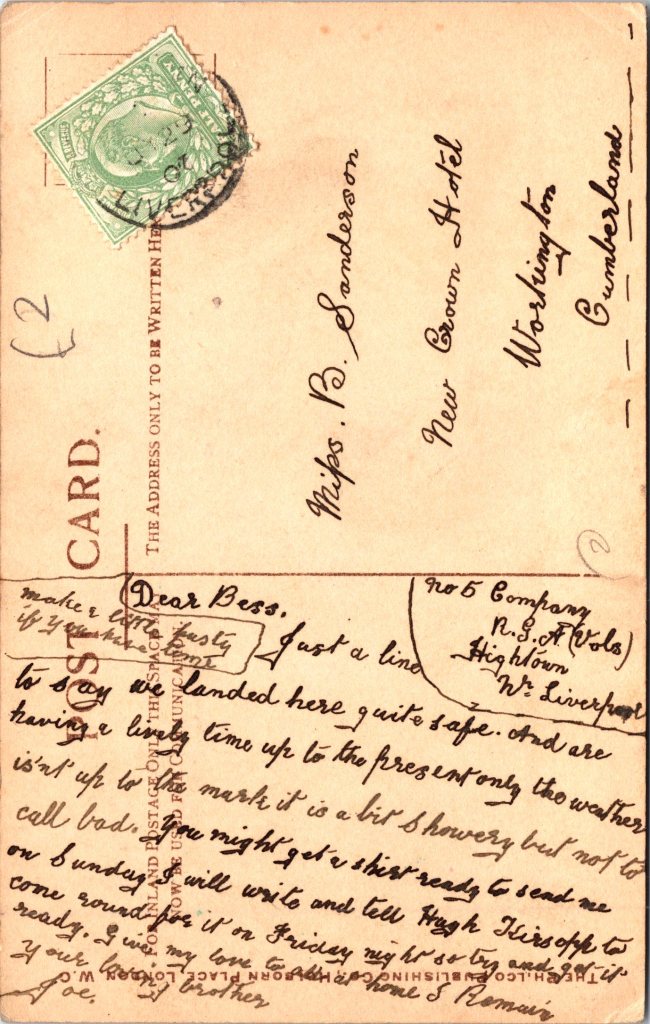 POST CARD.
THE ADDRESS ONLY TO BE WRITTEN HERE
FOR INLAND POSTAGE ONLY THIS SPACE MAY
NOW BE USED FOR COMMUNICATION
HALFPENNY
LIVERPOOL
£2
2
Miss. B. Sanderson
New Crown Hotel
Workington
Cumberland
No 5 Company
R.G.A (Vols)
Hightown
Nr Liverpool
make a little pasty
if you have time
Dear Bess.
Just a line
to say we landed here quite safe. And are
having a lively time up to the present only the weather
is'nt up to the mark it is a bit showery but not to
call bad. You might get a shirt ready to send me
on Sunday I will write and tell Hugh Kirsopp to
come round for it on Friday night so try and get it
ready. Give my love to all at home I Remain
Your loving brother
Joe.
THE PHILCO PUBLISHING CO., HOLBORN PLACE, LONDON W.C.